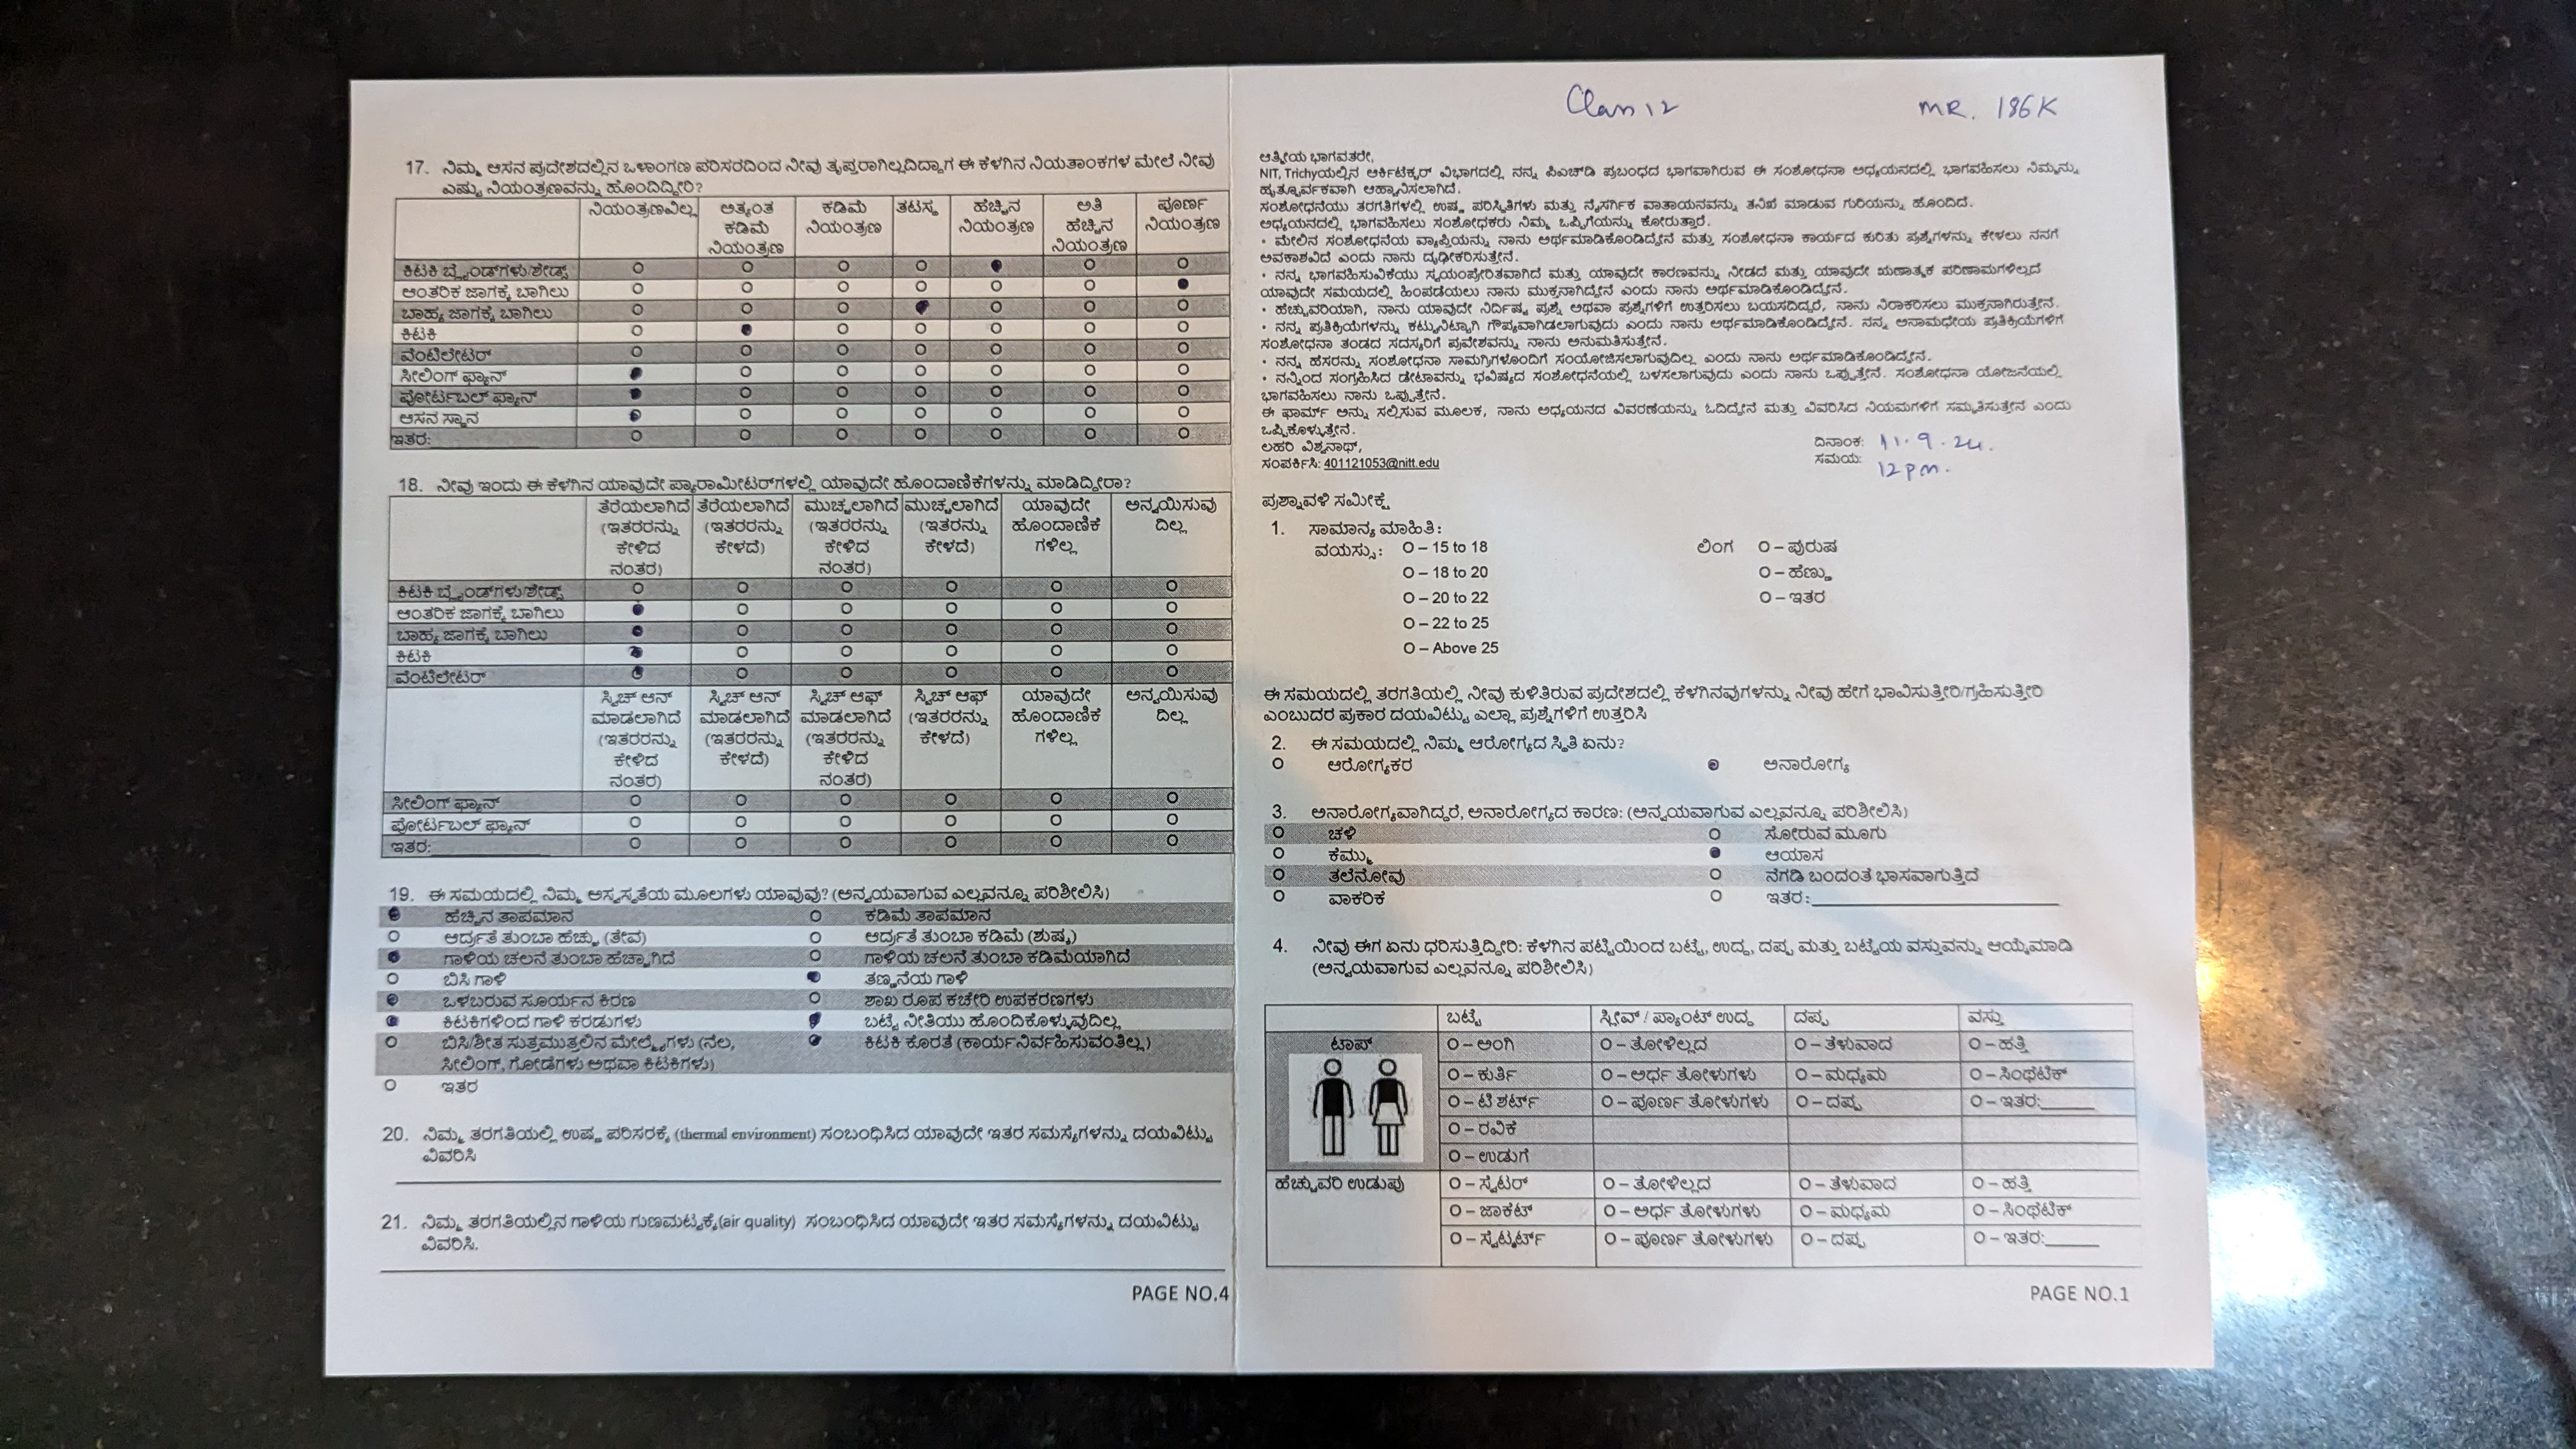 17. ನಿಮ್ಮ ಆಸನ ಪ್ರದೇಶದಲ್ಲಿನ ಒಳಾಂಗಣ ಪರಿಸರದಿಂದ ನೀವು ತೃಪ್ತರಾಗಿಲ್ಲದಿದ್ದಾಗ ಈ ಕೆಳಗಿನ ನಿಯತಾಂಕಗಳ ಮೇಲೆ ನೀವು
ಎಷ್ಟು ನಿಯಂತ್ರಣವನ್ನು ಹೊಂದಿದ್ದೀರಿ?
ನಿಯಂತ್ರಣವಿಲ್ಲ ಅತ್ಯಂತ ಕಡಿಮೆ ನಿಯಂತ್ರಣ ಕಡಿಮೆ ನಿಯಂತ್ರಣ ತಟಸ್ಥ ಹೆಚ್ಚಿನ ನಿಯಂತ್ರಣ ಅತಿ ಹೆಚ್ಚಿನ ನಿಯಂತ್ರಣ ಪೂರ್ಣ ನಿಯಂತ್ರಣ
ಕಿಟಕಿ ಬ್ಲೈಂಡ್‌ಗಳು/ಶೇಡ್ಸ್
ಆಂತರಿಕ ಜಾಗಕ್ಕೆ ಬಾಗಿಲು
ಬಾಹ್ಯ ಜಾಗಕ್ಕೆ ಬಾಗಿಲು
ಕಿಟಕಿ
ವೆಂಟಿಲೇಟರ್
ಸೀಲಿಂಗ್ ಫ್ಯಾನ್
ಪೋರ್ಟಬಲ್ ಫ್ಯಾನ್
ಆಸನ ಸ್ಥಾನ
ಇತರ:
18. ನೀವು ಇಂದು ಈ ಕೆಳಗಿನ ಯಾವುದೇ ಪ್ಯಾರಾಮೀಟರ್‌ಗಳಲ್ಲಿ ಯಾವುದೇ ಹೊಂದಾಣಿಕೆಗಳನ್ನು ಮಾಡಿದ್ದೀರಾ?
ತೆರೆಯಲಾಗಿದೆ (ಇತರರನ್ನು ಕೇಳಿದ ನಂತರ) ತೆರೆಯಲಾಗಿದೆ (ಇತರರನ್ನು ಕೇಳದೆ) ಮುಚ್ಚಲಾಗಿದೆ (ಇತರರನ್ನು ಕೇಳಿದ ನಂತರ) ಮುಚ್ಚಲಾಗಿದೆ (ಇತರರನ್ನು ಕೇಳದೆ) ಯಾವುದೇ ಹೊಂದಾಣಿಕೆ ಗಳಿಲ್ಲ ಅನ್ವಯಿಸುವು ದಿಲ್ಲ
ಕಿಟಕಿ ಬ್ಲೈಂಡ್‌ಗಳು/ಶೇಡ್ಸ್
ಆಂತರಿಕ ಜಾಗಕ್ಕೆ ಬಾಗಿಲು
ಬಾಹ್ಯ ಜಾಗಕ್ಕೆ ಬಾಗಿಲು
ಕಿಟಕಿ
ವೆಂಟಿಲೇಟರ್
ಸ್ವಿಚ್ ಆನ್ ಮಾಡಲಾಗಿದೆ (ಇತರರನ್ನು ಕೇಳಿದ ನಂತರ) ಸ್ವಿಚ್ ಆನ್ ಮಾಡಲಾಗಿದೆ (ಇತರರನ್ನು ಕೇಳದೆ) ಸ್ವಿಚ್ ಆಫ್ ಮಾಡಲಾಗಿದೆ (ಇತರರನ್ನು ಕೇಳಿದ ನಂತರ) ಸ್ವಿಚ್ ಆಫ್ (ಇತರರನ್ನು ಕೇಳದೆ) ಯಾವುದೇ ಹೊಂದಾಣಿಕೆ ಗಳಿಲ್ಲ ಅನ್ವಯಿಸುವು ದಿಲ್ಲ
ಸೀಲಿಂಗ್ ಫ್ಯಾನ್
ಪೋರ್ಟಬಲ್ ಫ್ಯಾನ್
ಇತರ:
19. ಈ ಸಮಯದಲ್ಲಿ ನಿಮ್ಮ ಅಸ್ವಸ್ಥತೆಯ ಮೂಲಗಳು ಯಾವುವು? (ಅನ್ವಯವಾಗುವ ಎಲ್ಲವನ್ನೂ ಪರಿಶೀಲಿಸಿ)
ಹೆಚ್ಚಿನ ತಾಪಮಾನ ಕಡಿಮೆ ತಾಪಮಾನ
ಆರ್ದ್ರತೆ ತುಂಬಾ ಹೆಚ್ಚು (ತೇವ) ಆರ್ದ್ರತೆ ತುಂಬಾ ಕಡಿಮೆ (ಶುಷ್ಕ)
ಗಾಳಿಯ ಚಲನೆ ತುಂಬಾ ಹೆಚ್ಚಾಗಿದೆ ಗಾಳಿಯ ಚಲನೆ ತುಂಬಾ ಕಡಿಮೆಯಾಗಿದೆ
ಬಿಸಿ ಗಾಳಿ ತಣ್ಣನೆಯ ಗಾಳಿ
ಒಳಬರುವ ಸೂರ್ಯನ ಕಿರಣ ಶಾಖ ರೂಪ ಕಚೇರಿ ಉಪಕರಣಗಳು
ಕಿಟಕಿಗಳಿಂದ ಗಾಳಿ ಕರಡುಗಳು ಬಟ್ಟೆ ನೀತಿಯು ಹೊಂದಿಕೊಳ್ಳುವುದಿಲ್ಲ
ಬಿಸಿ/ಶೀತ ಸುತ್ತಮುತ್ತಲಿನ ಮೇಲ್ಮೈಗಳು (ನೆಲ, ಕಿಟಕಿ ಕೊರತೆ (ಕಾರ್ಯನಿರ್ವಹಿಸುವಂತಿಲ್ಲ)
ಸೀಲಿಂಗ್, ಗೋಡೆಗಳು ಅಥವಾ ಕಿಟಕಿಗಳು)
ಇತರ
20. ನಿಮ್ಮ ತರಗತಿಯಲ್ಲಿ ಉಷ್ಣ ಪರಿಸರಕ್ಕೆ (thermal environment) ಸಂಬಂಧಿಸಿದ ಯಾವುದೇ ಇತರ ಸಮಸ್ಯೆಗಳನ್ನು ದಯವಿಟ್ಟು
ವಿವರಿಸಿ
21. ನಿಮ್ಮ ತರಗತಿಯಲ್ಲಿನ ಗಾಳಿಯ ಗುಣಮಟ್ಟಕ್ಕೆ(air quality) ಸಂಬಂಧಿಸಿದ ಯಾವುದೇ ಇತರ ಸಮಸ್ಯೆಗಳನ್ನು ದಯವಿಟ್ಟು
ವಿವರಿಸಿ.
PAGE NO.4
Class 12 MR. 186K
ಆತ್ಮೀಯ ಭಾಗವತರೇ,
NIT, Trichyಯಲ್ಲಿನ ಆರ್ಕಿಟೆಕ್ಚರ್ ವಿಭಾಗದಲ್ಲಿ ನನ್ನ ಪಿಎಚ್‌ಡಿ ಪ್ರಬಂಧದ ಭಾಗವಾಗಿರುವ ಈ ಸಂಶೋಧನಾ ಅಧ್ಯಯನದಲ್ಲಿ ಭಾಗವಹಿಸಲು ನಿಮ್ಮನ್ನು
ಹೃತ್ಪೂರ್ವಕವಾಗಿ ಆಹ್ವಾನಿಸಲಾಗಿದೆ.
ಸಂಶೋಧನೆಯು ತರಗತಿಗಳಲ್ಲಿ ಉಷ್ಣ ಪರಿಸ್ಥಿತಿಗಳು ಮತ್ತು ನೈಸರ್ಗಿಕ ವಾತಾಯನವನ್ನು ತನಿಖೆ ಮಾಡುವ ಗುರಿಯನ್ನು ಹೊಂದಿದೆ.
ಅಧ್ಯಯನದಲ್ಲಿ ಭಾಗವಹಿಸಲು ಸಂಶೋಧಕರು ನಿಮ್ಮ ಒಪ್ಪಿಗೆಯನ್ನು ಕೋರುತ್ತಾರೆ.
• ಮೇಲಿನ ಸಂಶೋಧನೆಯ ವ್ಯಾಪ್ತಿಯನ್ನು ನಾನು ಅರ್ಥಮಾಡಿಕೊಂಡಿದ್ದೇನೆ ಮತ್ತು ಸಂಶೋಧನಾ ಕಾರ್ಯದ ಕುರಿತು ಪ್ರಶ್ನೆಗಳನ್ನು ಕೇಳಲು ನನಗೆ
ಅವಕಾಶವಿದೆ ಎಂದು ನಾನು ದೃಢೀಕರಿಸುತ್ತೇನೆ.
• ನನ್ನ ಭಾಗವಹಿಸುವಿಕೆಯು ಸ್ವಯಂಪ್ರೇರಿತವಾಗಿದೆ ಮತ್ತು ಯಾವುದೇ ಕಾರಣವನ್ನು ನೀಡದೆ ಮತ್ತು ಯಾವುದೇ ಋಣಾತ್ಮಕ ಪರಿಣಾಮಗಳಿಲ್ಲದೆ
ಯಾವುದೇ ಸಮಯದಲ್ಲಿ ಹಿಂಪಡೆಯಲು ನಾನು ಮುಕ್ತನಾಗಿದ್ದೇನೆ ಎಂದು ನಾನು ಅರ್ಥಮಾಡಿಕೊಂಡಿದ್ದೇನೆ.
• ಹೆಚ್ಚುವರಿಯಾಗಿ, ನಾನು ಯಾವುದೇ ನಿರ್ದಿಷ್ಟ ಪ್ರಶ್ನೆ ಅಥವಾ ಪ್ರಶ್ನೆಗಳಿಗೆ ಉತ್ತರಿಸಲು ಬಯಸದಿದ್ದರೆ, ನಾನು ನಿರಾಕರಿಸಲು ಮುಕ್ತನಾಗಿರುತ್ತೇನೆ.
• ನನ್ನ ಪ್ರತಿಕ್ರಿಯೆಗಳನ್ನು ಕಟ್ಟುನಿಟ್ಟಾಗಿ ಗೌಪ್ಯವಾಗಿಡಲಾಗುವುದು ಎಂದು ನಾನು ಅರ್ಥಮಾಡಿಕೊಂಡಿದ್ದೇನೆ. ನನ್ನ ಅನಾಮಧೇಯ ಪ್ರತಿಕ್ರಿಯೆಗಳಿಗೆ
ಸಂಶೋಧನಾ ತಂಡದ ಸದಸ್ಯರಿಗೆ ಪ್ರವೇಶವನ್ನು ನಾನು ಅನುಮತಿಸುತ್ತೇನೆ.
• ನನ್ನ ಹೆಸರನ್ನು ಸಂಶೋಧನಾ ಸಾಮಗ್ರಿಗಳೊಂದಿಗೆ ಸಂಯೋಜಿಸಲಾಗುವುದಿಲ್ಲ ಎಂದು ನಾನು ಅರ್ಥಮಾಡಿಕೊಂಡಿದ್ದೇನೆ.
• ನನ್ನಿಂದ ಸಂಗ್ರಹಿಸಿದ ಡೇಟಾವನ್ನು ಭವಿಷ್ಯದ ಸಂಶೋಧನೆಯಲ್ಲಿ ಬಳಸಲಾಗುವುದು ಎಂದು ನಾನು ಒಪ್ಪುತ್ತೇನೆ. ಸಂಶೋಧನಾ ಯೋಜನೆಯಲ್ಲಿ
ಭಾಗವಹಿಸಲು ನಾನು ಒಪ್ಪುತ್ತೇನೆ.
ಈ ಫಾರ್ಮ್ ಅನ್ನು ಸಲ್ಲಿಸುವ ಮೂಲಕ, ನಾನು ಅಧ್ಯಯನದ ವಿವರಣೆಯನ್ನು ಓದಿದ್ದೇನೆ ಮತ್ತು ವಿವರಿಸಿದ ನಿಯಮಗಳಿಗೆ ಸಮ್ಮತಿಸುತ್ತೇನೆ ಎಂದು
ಒಪ್ಪಿಕೊಳ್ಳುತ್ತೇನೆ.
ಲಹರಿ ವಿಶ್ವನಾಥ್,
ಸಂಪರ್ಕಿಸಿ: 401121053@nitt.edu
ದಿನಾಂಕ: 11.9.24.
ಸಮಯ: 12pm.
ಪ್ರಶ್ನಾವಳಿ ಸಮೀಕ್ಷೆ
1. ಸಾಮಾನ್ಯ ಮಾಹಿತಿ:
ವಯಸ್ಸು: O – 15 to 18 ಲಿಂಗ O – ಪುರುಷ
O – 18 to 20 O – ಹೆಣ್ಣು
O – 20 to 22 O – ಇತರ
O – 22 to 25
O – Above 25
ಈ ಸಮಯದಲ್ಲಿ ತರಗತಿಯಲ್ಲಿ ನೀವು ಕುಳಿತಿರುವ ಪ್ರದೇಶದಲ್ಲಿ ಕೆಳಗಿನವುಗಳನ್ನು ನೀವು ಹೇಗೆ ಭಾವಿಸುತ್ತೀರಿ/ಗ್ರಹಿಸುತ್ತೀರಿ
ಎಂಬುದರ ಪ್ರಕಾರ ದಯವಿಟ್ಟು ಎಲ್ಲಾ ಪ್ರಶ್ನೆಗಳಿಗೆ ಉತ್ತರಿಸಿ
2. ಈ ಸಮಯದಲ್ಲಿ ನಿಮ್ಮ ಆರೋಗ್ಯದ ಸ್ಥಿತಿ ಏನು?
ಆರೋಗ್ಯಕರ ಅನಾರೋಗ್ಯ
3. ಅನಾರೋಗ್ಯವಾಗಿದ್ದರೆ, ಅನಾರೋಗ್ಯದ ಕಾರಣ: (ಅನ್ವಯವಾಗುವ ಎಲ್ಲವನ್ನೂ ಪರಿಶೀಲಿಸಿ)
ಚಳಿ ಸೋರುವ ಮೂಗು
ಕೆಮ್ಮು ಆಯಾಸ
ತಲೆನೋವು ನೆಗಡಿ ಬಂದಂತೆ ಭಾಸವಾಗುತ್ತಿದೆ
ವಾಕರಿಕೆ ಇತರ:
4. ನೀವು ಈಗ ಏನು ಧರಿಸುತ್ತಿದ್ದೀರಿ: ಕೆಳಗಿನ ಪಟ್ಟಿಯಿಂದ ಬಟ್ಟೆ, ಉದ್ದ, ದಪ್ಪ ಮತ್ತು ಬಟ್ಟೆಯ ವಸ್ತುವನ್ನು ಆಯ್ಕೆಮಾಡಿ
(ಅನ್ವಯವಾಗುವ ಎಲ್ಲವನ್ನೂ ಪರಿಶೀಲಿಸಿ)
ಬಟ್ಟೆ ಸ್ಲೀವ್ / ಪ್ಯಾಂಟ್ ಉದ್ದ ದಪ್ಪ ವಸ್ತು
ಟಾಪ್ O – ಅಂಗಿ O – ತೋಳಿಲ್ಲದ O – ತೆಳುವಾದ O – ಹತ್ತಿ
O – ಕುರ್ತಿ O – ಅರ್ಧ ತೋಳುಗಳು O – ಮಧ್ಯಮ O – ಸಿಂಥೆಟಿಕ್
O – ಟಿ ಶರ್ಟ್ O – ಪೂರ್ಣ ತೋಳುಗಳು O – ದಪ್ಪ O – ಇತರ:
O – ರವಿಕೆ
O – ಉಡುಗೆ
ಹೆಚ್ಚುವರಿ ಉಡುಪು O – ಸ್ವೆಟರ್ O – ತೋಳಿಲ್ಲದ O – ತೆಳುವಾದ O – ಹತ್ತಿ
O – ಜಾಕೆಟ್ O – ಅರ್ಧ ತೋಳುಗಳು O – ಮಧ್ಯಮ O – ಸಿಂಥೆಟಿಕ್
O – ಸ್ವೆಟ್ಶರ್ಟ್ O – ಪೂರ್ಣ ತೋಳುಗಳು O – ದಪ್ಪ O – ಇತರ:
PAGE NO.1